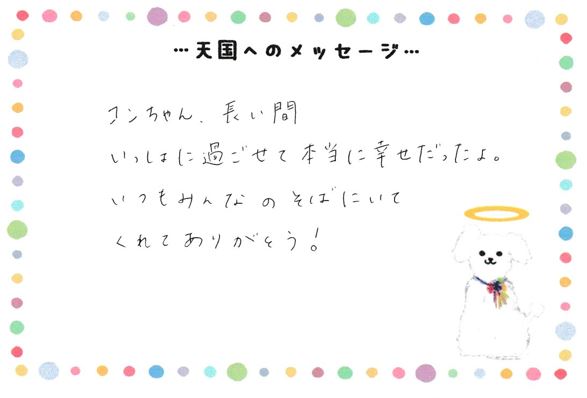 …天国へのメッセージ…
コンちゃん、長い間
いっしょに過ごせて本当に幸せだったよ。
いつもみんなのそばにいて
くれてありがとう！